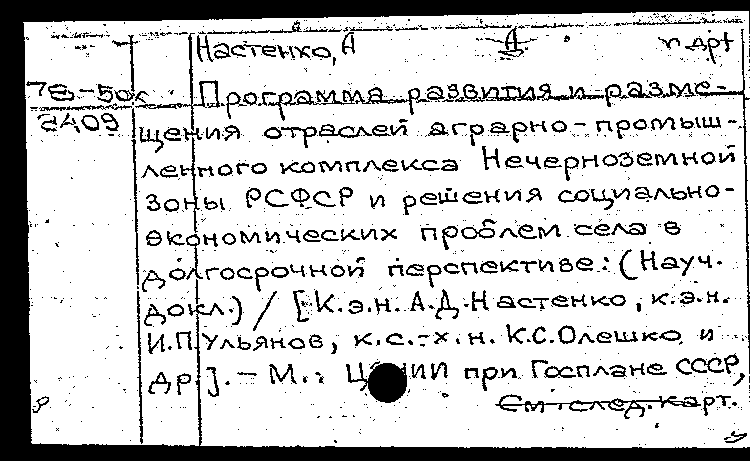 Настенко, А
78-50к
2409
Программа развития и разме-
щения отраслей аграрно-промыш-
ленного комплекса Нечерноземной
Зоны РСФСР и решения социально-
экономических проблем села в
долгосрочной перспективе: (Науч.
докл.) / [К.э.н. А.Д. Настенко, к.э.н.
И.П. Ульянов, к.с.-х.н. К.С. Олешко и
др.]. - М.: при Госплане СССР,
См. след. карт.